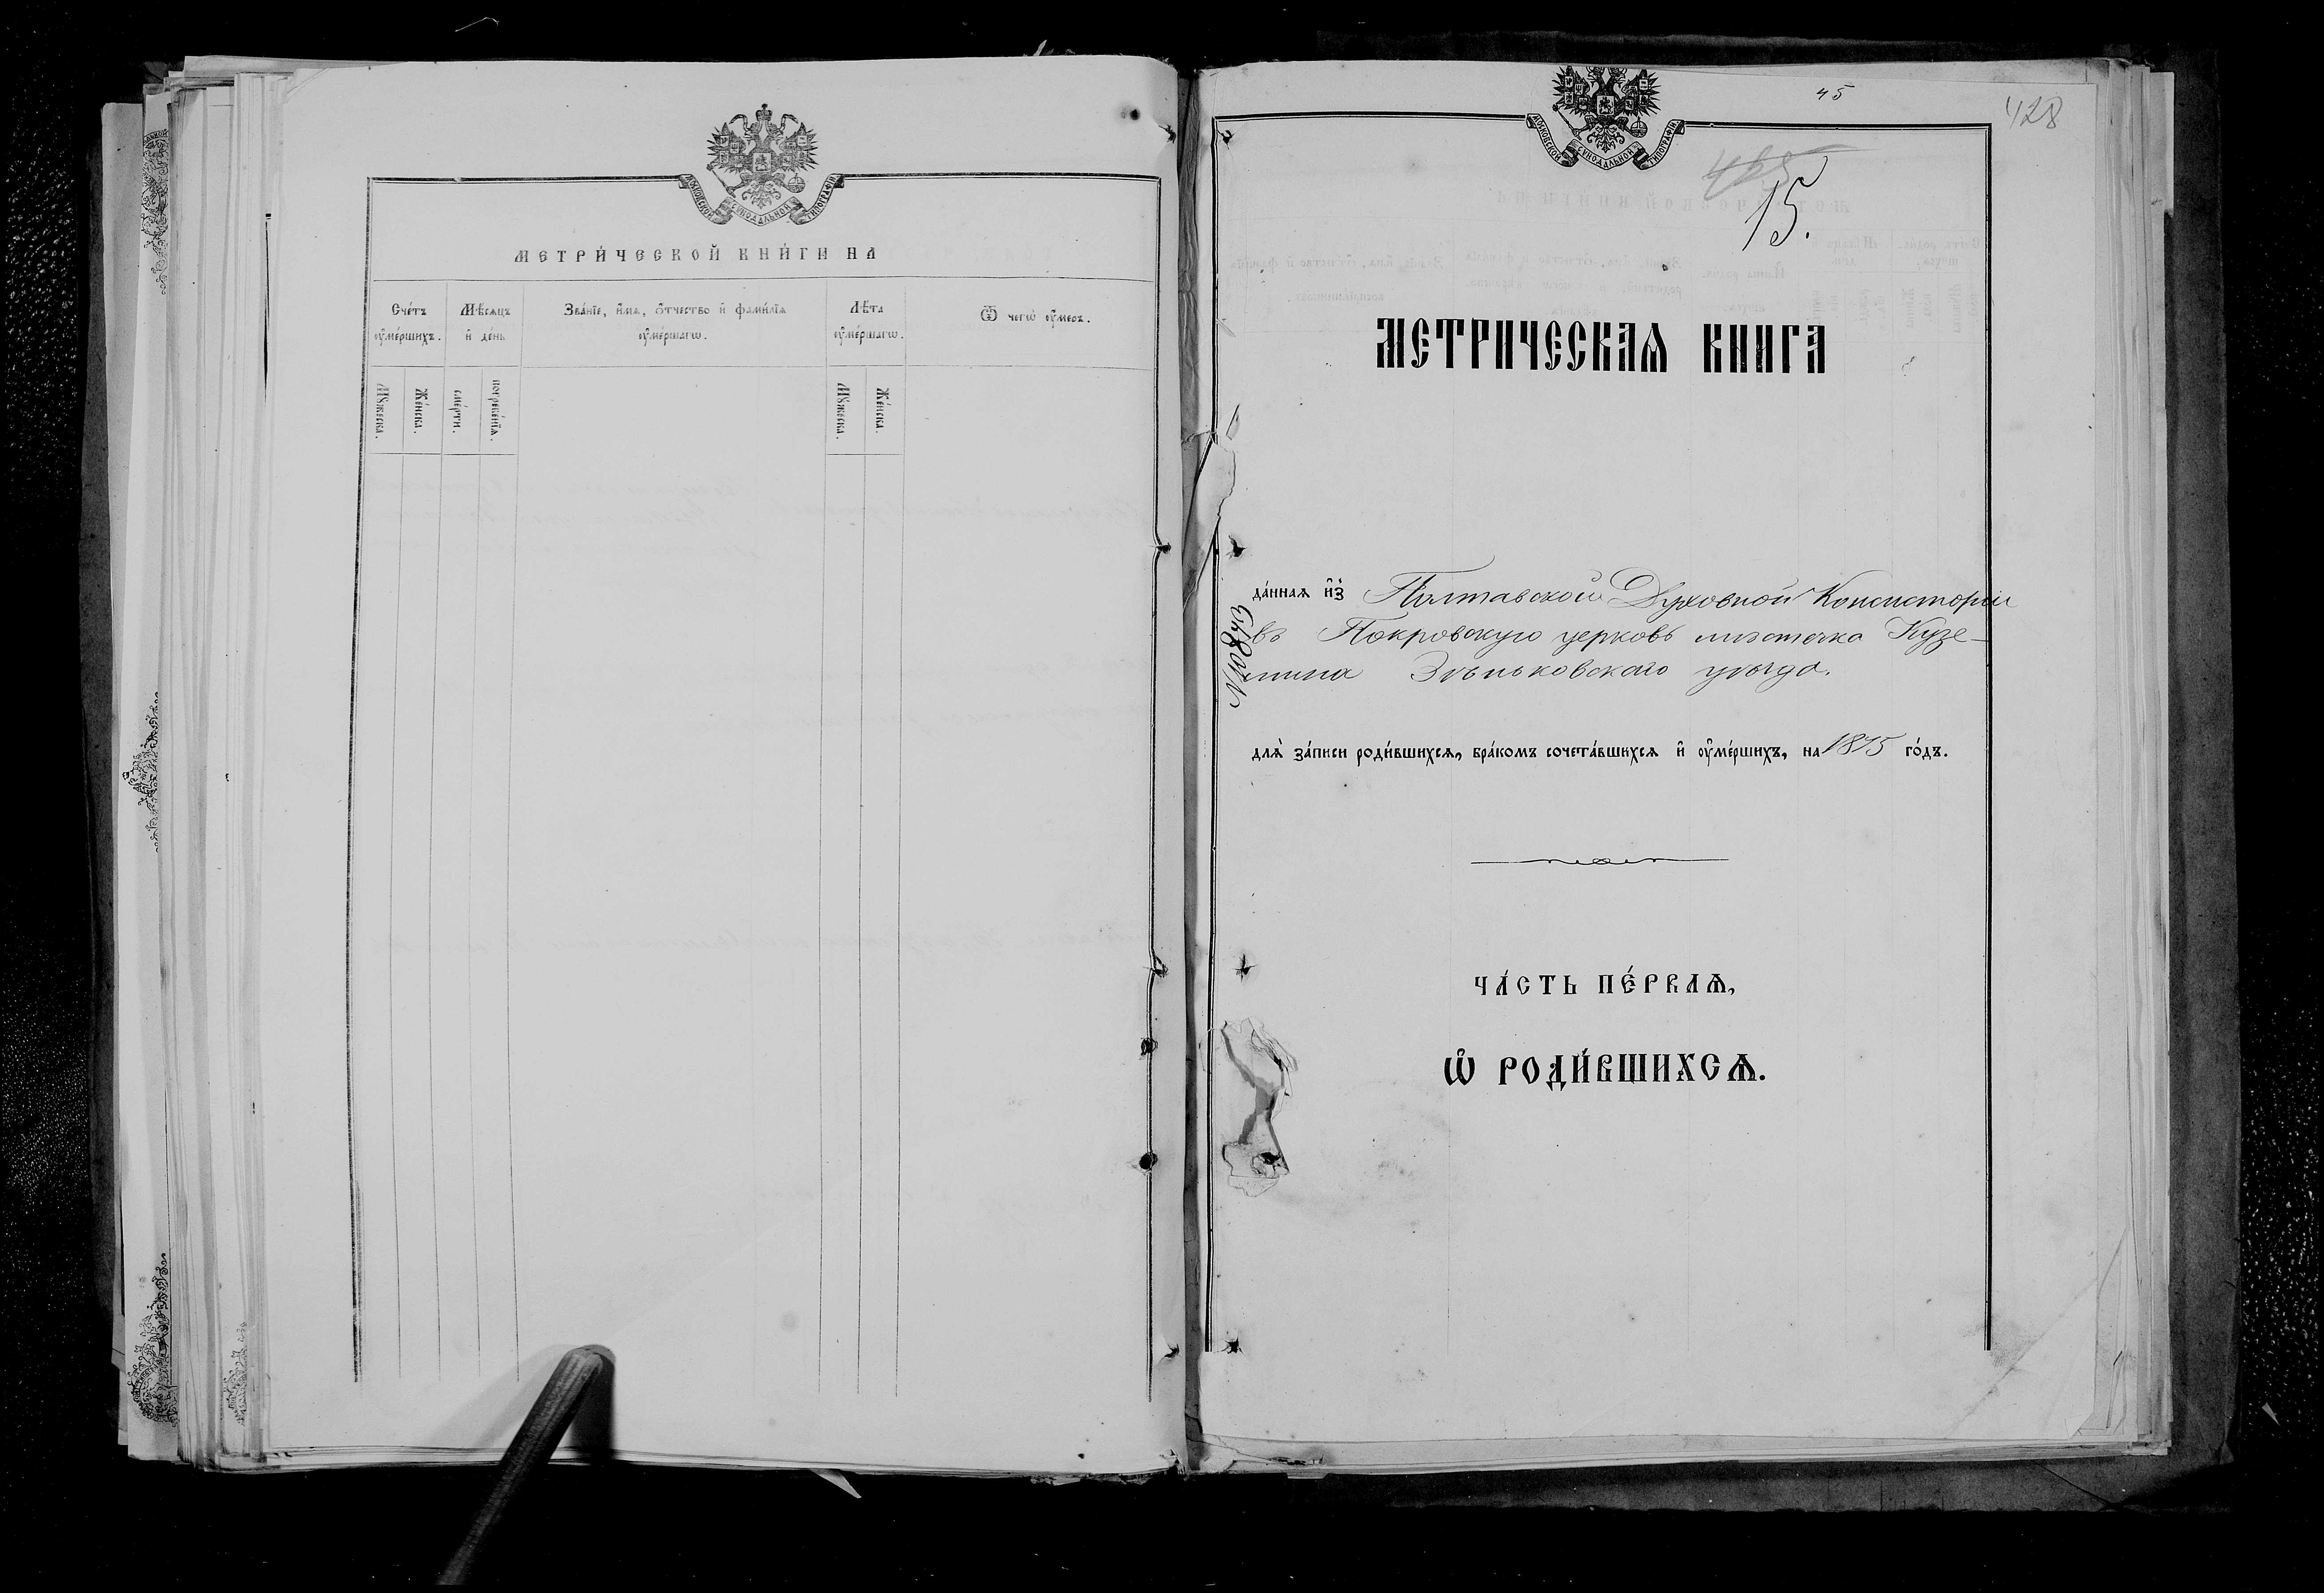 МОСКОВСКОЙ СѴНОДАЛЬНОЙ ТИПОГРАФІИ
МЕТРИ́ЧЕСКОЙ КНИ́ГИ НА
Сче́тъ ᲂу҆ме́ршихъ.
Мѣ́сѧцъ и҆ де́нь
Зва́нїе, и҆́мѧ, ѻ҆́тчество и҆ фами́лїѧ ᲂу҆ме́ршагѡ.
Лѣ́та ᲂу҆ме́ршагѡ.
Ѿ чегѡ̀ ᲂу҆́меръ.
Мꙋ́жеска.
Же́нска.
сме́рти.
погребе́нїѧ.
Мꙋ́жеска.
Же́нска.
45
428
МОСКОВСКОЙ СѴНОДАЛЬНОЙ ТИПОГРАФІИ
15.
МЕТРИЧЕСКАѦ КНИГА
да́ннаѧ и҆з̾ Полтавской Духовной Консисторіи
въ Покровскую церковь мѣстечка Кузе-
мина Зѣньковскаго уѣзда.
длѧ̀ за́писи роди́вшихсѧ, бра́комъ сочета́вшихсѧ и҆ ᲂу҆ме́ршихъ, на 1875 го́дъ.
ЧА́СТЬ ПЕ́РВАѦ,
Ѡ҆ РОДИ́ВШИХСѦ.